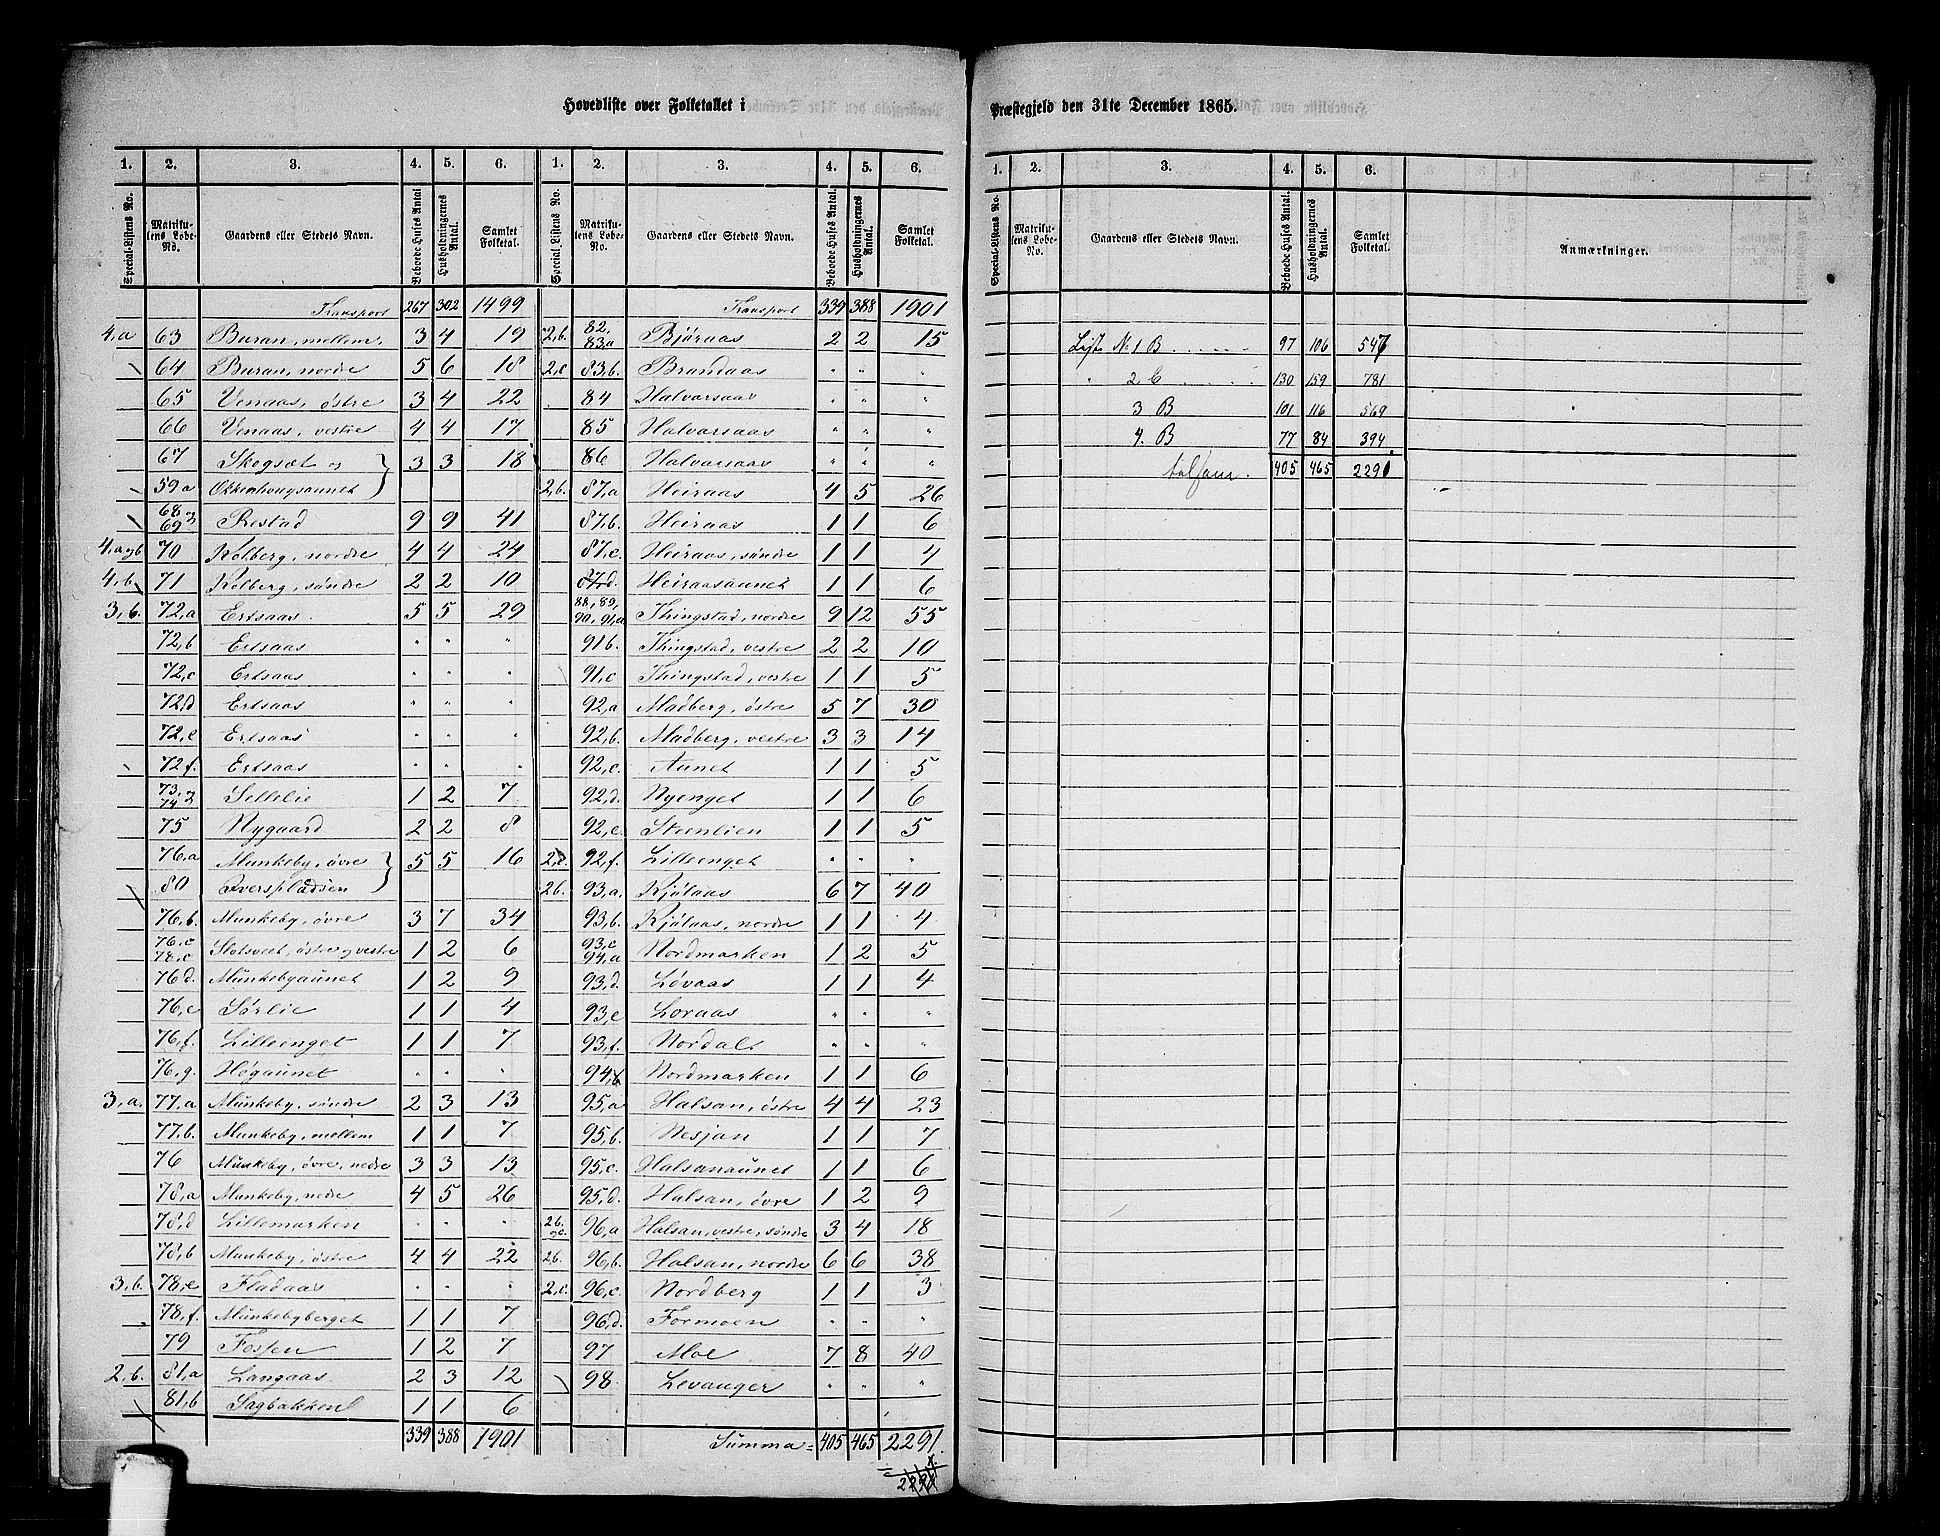 Hovedliste over Folketallet i
1. 2. 3. 4. 5. 6. 1. 2. 3. 4. 5. 6.
Special-Listens No. Matrikulens Løbe-No. Gaardens eller Stedets Navn. Beboede Huses Antal. Husholdningernes Antal. Samlet Folketal. Special-Listens No. Matrikulens Løbe-No. Gaardens eller Stedets Navn. Beboede Huses Antal. Husholdningernes Antal. Samlet Folketal.
Transport 267 302 1499
4,a 63 Buran, mellem, 3 4 19
64 Buran, nordre 5 6 18
65 Venaas, østre 3 4 22
66 Venaas, vestre 4 4 17
67 Skogsæt og 3 3 18
59a Okkenhougsaunet
68 69 Restad 9 9 41
4,a og b 70 Kolberg, nordre 4 4 24
4,b 71 Kolberg, søndre 2 2 10
3,b. 72,a Ertsaas 5 5 29
72,b Ertsaas " " "
72,c Ertsaas " " "
72,d Ertsaas " " "
72,e Ertsaas " " "
72f. Ertsaas "
73, 74 Sellelie 1 2 7
75 Nygaard 2 2 8
76,a Munkeby, øvre 5 5 16
80 Tverspladsen
76,b. Munkeby, øvre 3 7 34
76,c 78,c Slotsveet, østre og vestre 1 2 6
76d. Munkebyaunet 1 2 9
76,e Sørlie 1 1 4
76,f. Lilleenget 1 1 7
76,g. Høgaunet " " "
3,a. 77,a Munkeby, søndre 2 3 13
77,b. Munkeby, mellem 1 1 7
76 Munkeby, øvre, nedre 3 3 13
78,a Munkeby, nedre 4 5 26
78,d Lillemarken " " "
78,b Munkeby, østre 4 4 22
3,b. 78,e Fladaas " " "
78,f. Munkebyberget 1 1 7
79 Fossen 1 2 7
2,b. 81,a Langaas 2 3 12
81,b Sagbakken 1 1 6
339 388 1901
Transport 339 388 1901
2,b. 82, 83,a Bjøraas 2 2 15
2,c 83,b. Brandaas " " "
84 Halvarsaas " " "
85 Halvarsaas " " "
86 Halvarsaas " " "
2,b. 87,a Heiraas 4 5 26
87,b. Heiraas 1 1 6
87,c. Heiraas, søndre 1 1 4
87,d. Heiraasaunet 1 1 6
88, 89, 90, 91,a Thingstad, nordre 9 12 55
91b. Thingstad, vestre 2 2 10
91,c Thingstad, vestre 1 1 5
92,a Madberg, østre 5 7 30
92,b. Madberg, vestre 3 3 14
92,c. Aunet 1 1 5
92,d. Nyenget 1 1 6
92,e. Steenlien 1 1 5
2,c. 92,f. Lilleenget " " "
2b. 93,a, Kjølaas 6 7 40
93,b. Kjølaas, nordre 1 1 4
93,c 94,a Nordmarken 1 2 5
93,d. Løvaas 1 1 4
93,e Loraas " " "
93,f. Nordal " " "
94,b Nordmarken 1 1 6
95,a Halsan, østre 4 4 23
95,b. Nesjan 1 1 7
95,c. Halsanaunet 1 1 6
95,d. Halsan, øvre 1 2 9
2b. og c. 96,a Halsan, vestre, søndre 3 4 18
2b. 96,b. Halsan, nordre 6 6 38
2,c. 96,c Nordberg 1 1 3
96,d. Formoen " " "
97 Moe 7 8 40
98. Levanger " " "
Summa = 405 465 2291.
Præstegjeld den 31te December 1865.
1. 2. 3. 4. 5. 6.
Special-Listens No. Matrikulens Løbe-No. Gaardens eller Stedets Navn. Beboede Huses Antal. Husholdningernes Antal. Samlet Folketal. Anmærkninger.
Liste N. 1 B 97 106 547
" 2 C 130 159 781
3 B 101 116 569
4. B 77 84 394
405 465 2291